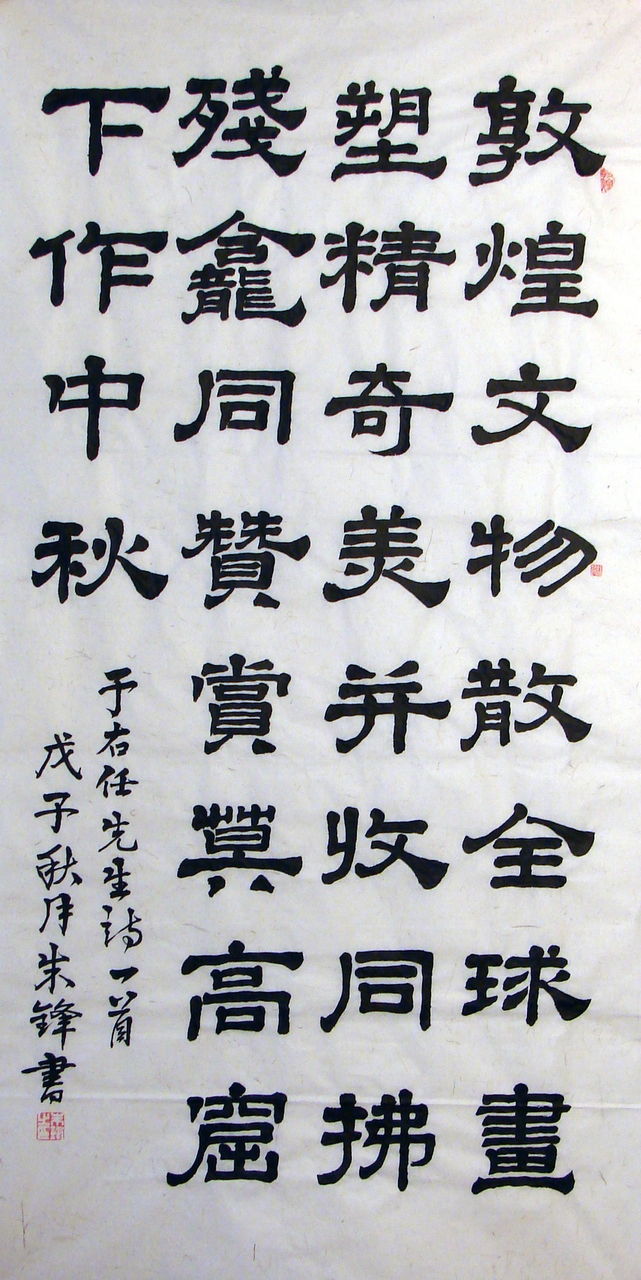 敦煌文物散全球畫
塑精奇美并收同拂
殘龕同贊賞莫高窟
下作中秋
于右任先生詩一首
戊子秋月朱鋒書